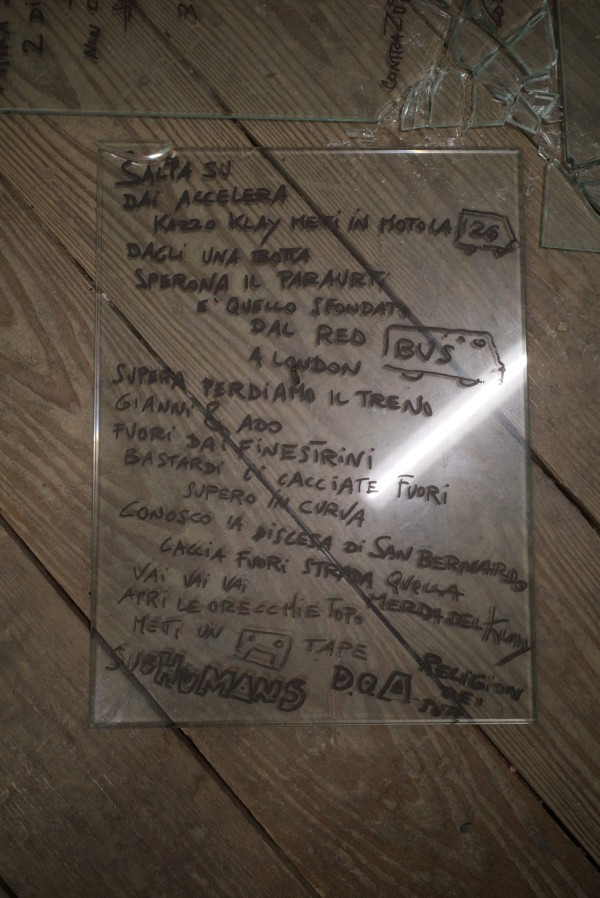 2 DI
3
CONTRA
SALTA SU
DAI ACCELERA
KAZZO KLAY METI IN MOTO LA 126
DAGLI UNA BOTTA
SPERONA IL PARAURTI
E' QUELLO SFONDATO
DAL RED BUS
A LONDON
SUPERA PERDIAMO IL TRENO
GIANNI & ADO
FUORI DAI FINESTRINI
BASTARDI CI CACCIATE FUORI
SUPERO IN CURVA
CONOSCO LA DISCESA DI SAN BERNARDO
CACCIA FUORI STRADA QUELLA
MERDA DEL
VAI VAI VAI
APRI LE ORECCHIE TOPO
METI UN TAPE
SUBHUMANS D.O.A RELIGION